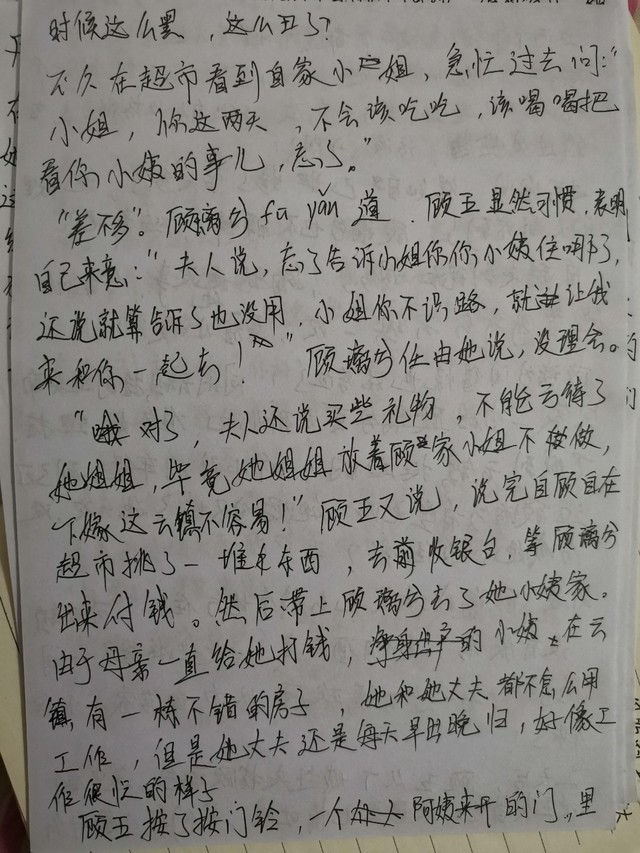 时候这么黑，这么丑了？
不久在超市看到自家小姐，急忙过去问："
小姐，你这两天，不会该吃吃，该喝喝把
看你小姨的事儿，忘了。"
"差不多"。顾漓兮fu yǎn道．顾五显然习惯，表明
自己来意："夫人说，忘了告诉小姐你你小姨住哪了，
还说就算告诉了也没用，小姐你不识路，就让我
来和你一起去！"顾漓兮任由她说，没理会。
"哦对了，夫人还说买些礼物，不能亏待了
她姐姐，毕竟她姐姐放着顾家小姐不做，
下嫁这云镇不容易！"顾五又说，说完自顾自在
超市挑了一堆东西，去前收银台，等顾漓兮
出来付钱。然后带上顾漓兮去了她小姨家。
由于母亲一直给她打钱，净身出户的小姨在云
镇有一栋不错的房子，她和她丈夫都不怎么用
工作，但是她丈夫还是每天早出晚归，好像工
作很忙的样子
顾五按了按门铃，一个阿姨来开的门，里